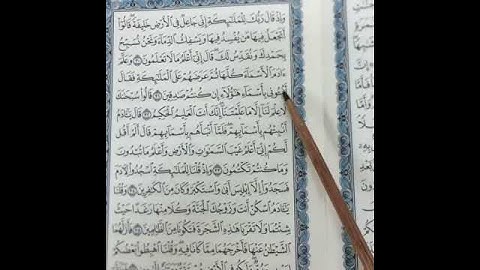 وَإِذْ قَالَ رَبُّكَ لِلْمَلَٰٓئِكَةِ إِنِّى جَاعِلٌ فِى ٱلْأَرْضِ خَلِيفَةً قَالُوٓا۟
أَتَجْعَلُ فِيهَا مَن يُفْسِدُ فِيهَا وَيَسْفِكُ ٱلدِّمَآءَ وَنَحْنُ نُسَبِّحُ
بِحَمْدِكَ وَنُقَدِّسُ لَكَ قَالَ إِنِّىٓ أَعْلَمُ مَا لَا تَعْلَمُونَ ٣٠ وَعَلَّمَ
ءَادَمَ ٱلْأَسْمَآءَ كُلَّهَا ثُمَّ عَرَضَهُمْ عَلَى ٱلْمَلَٰٓئِكَةِ فَقَالَ
أَنۢبِـُٔونِى بِأَسْمَآءِ هَٰٓؤُلَآءِ إِن كُنتُمْ صَٰدِقِينَ ٣١ قَالُوا۟ سُبْحَٰنَكَ
لَا عِلْمَ لَنَآ إِلَّا مَا عَلَّمْتَنَآ إِنَّكَ أَنتَ ٱلْعَلِيمُ ٱلْحَكِيمُ ٣٢ قَالَ يَٰٓـَٔادَمُ
أَنۢبِئْهُم بِأَسْمَآئِهِمْ فَلَمَّآ أَنۢبَأَهُم بِأَسْمَآئِهِمْ قَالَ أَلَمْ أَقُل
لَّكُمْ إِنِّىٓ أَعْلَمُ غَيْبَ ٱلسَّمَٰوَٰتِ وَٱلْأَرْضِ وَأَعْلَمُ مَا تُبْدُونَ
وَمَا كُنتُمْ تَكْتُمُونَ ٣٣ وَإِذْ قُلْنَا لِلْمَلَٰٓئِكَةِ ٱسْجُدُوا۟ لِـَٔادَمَ
فَسَجَدُوٓا۟ إِلَّآ إِبْلِيسَ أَبَىٰ وَٱسْتَكْبَرَ وَكَانَ مِنَ ٱلْكَٰفِرِينَ ٣٤ وَقُلْنَا
يَٰٓـَٔادَمُ ٱسْكُنْ أَنتَ وَزَوْجُكَ ٱلْجَنَّةَ وَكُلَا مِنْهَا رَغَدًا حَيْثُ
شِئْتُمَا وَلَا تَقْرَبَا هَٰذِهِ ٱلشَّجَرَةَ فَتَكُونَا مِنَ ٱلظَّٰلِمِينَ ٣٥ فَأَزَلَّهُمَا
ٱلشَّيْطَٰنُ عَنْهَا فَأَخْرَجَهُمَا مِمَّا كَانَا فِيهِ وَقُلْنَا ٱهْبِطُوا۟ بَعْضُكُمْ